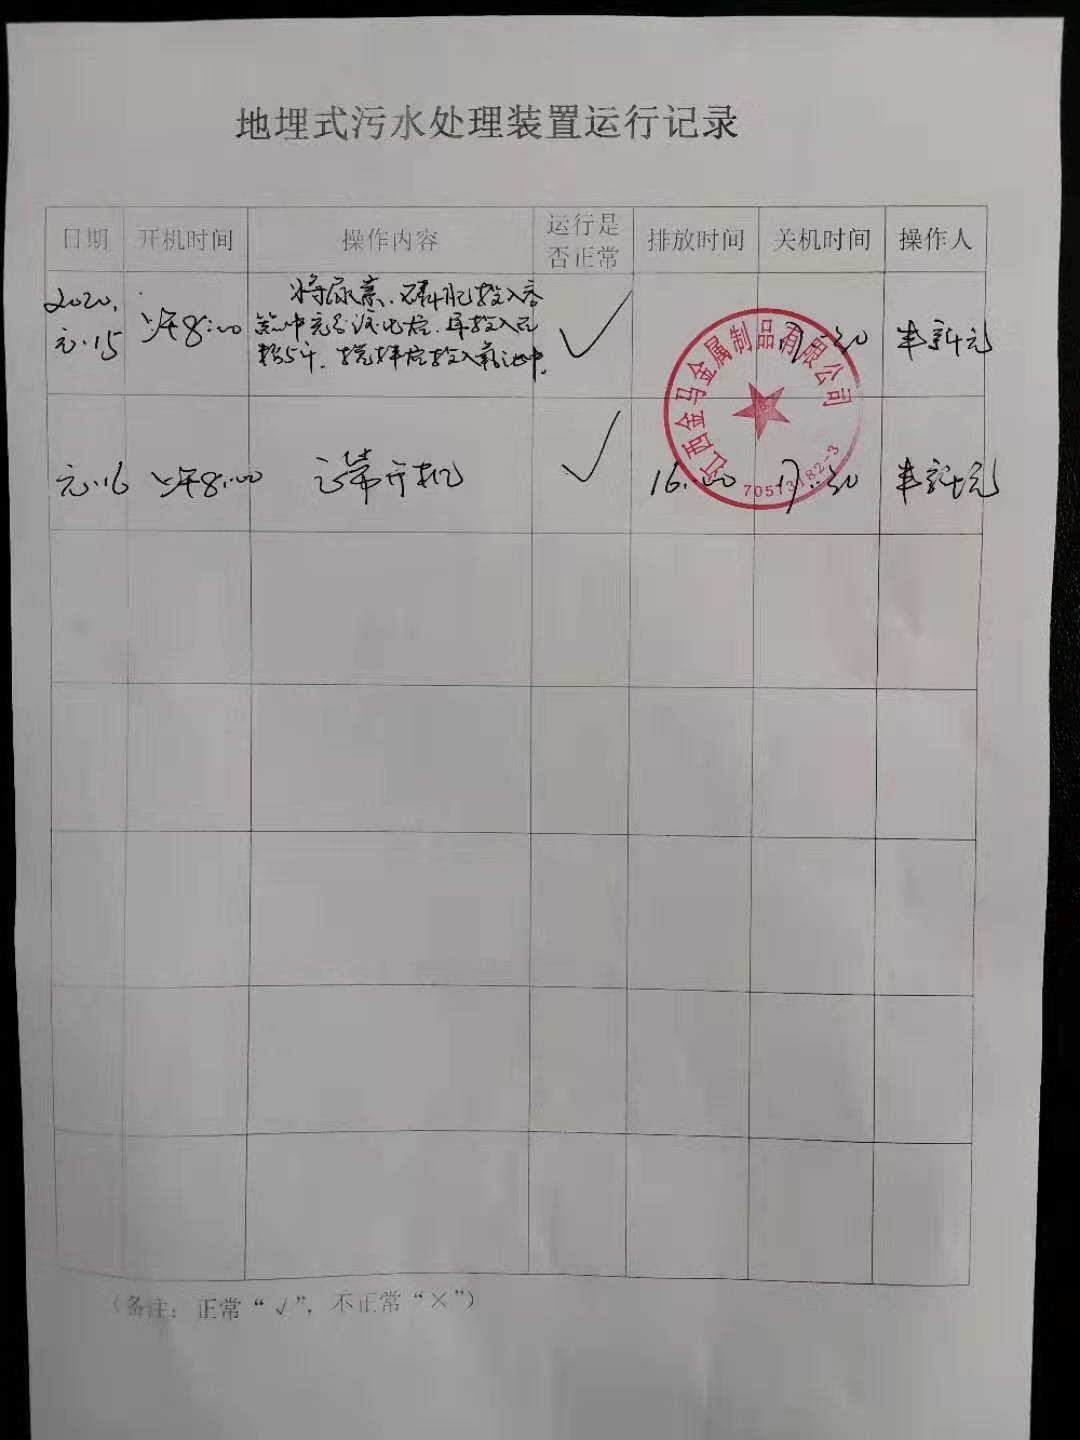 地埋式污水处理装置运行记录
日期 开机时间 操作内容 运行是否正常 排放时间 关机时间 操作人
2020.元.15 上午8:00 将尿素、磷肥投入容
中充分溶化后,再投入面
粉5斤,搅拌后投入氧池中。 ✓ 17:30 新元
元.16 上午8:00 正常开机 ✓ 16:00 17:30 新元
江西金马金属制品有限公司
70573182-3
(备注:正常“√”,不正常“×”)